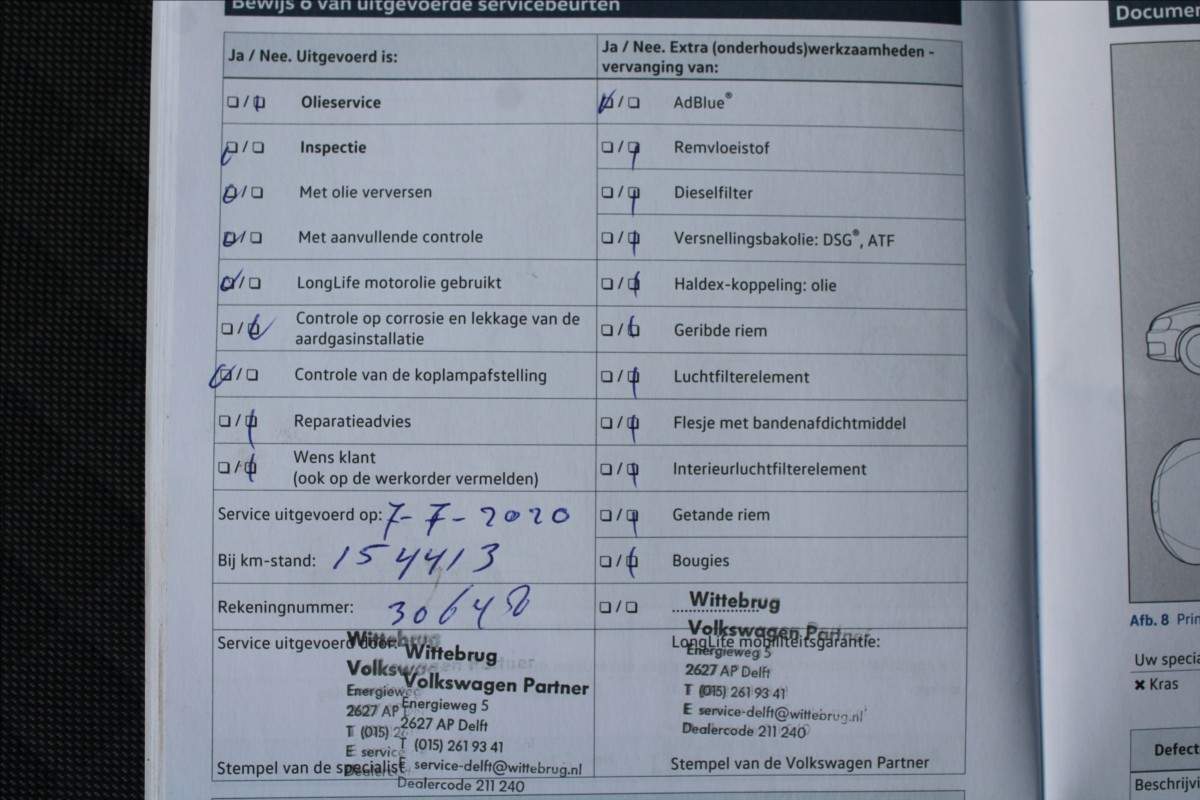 Bewijs 6 van uitgevoerde servicebeurten
Ja / Nee. Uitgevoerd is:
Olieservice
Inspectie
Met olie verversen
Met aanvullende controle
LongLife motorolie gebruikt
Controle op corrosie en lekkage van de
aardgasinstallatie
Controle van de koplampafstelling
Reparatieadvies
Wens klant
(ook op de werkorder vermelden)
Service uitgevoerd op: 7-7-2020
Bij km-stand: 154413
Rekeningnummer: 30648
Service uitgevoerd door:
Wittebrug
Volkswagen Partner
Energieweg 5
2627 AP Delft
T (015) 261 93 41
E service-delft@wittebrug.nl
Dealercode 211 240
Stempel van de specialist
Ja / Nee. Extra (onderhouds)werkzaamheden -
vervanging van:
AdBlue®
Remvloeistof
Dieselfilter
Versnellingsbakolie: DSG®, ATF
Haldex-koppeling: olie
Geribde riem
Luchtfilterelement
Flesje met bandenafdichtmiddel
Interieurluchtfilterelement
Getande riem
Bougies
Wittebrug
Volkswagen Partner
LongLife mobiliteitsgarantie:
Energieweg 5
2627 AP Delft
T (015) 261 93 41
E service-delft@wittebrug.nl
Dealercode 211 240
Stempel van de Volkswagen Partner
Documen
Afb. 8 Prin
Uw specia
✖ Kras
Defect
Beschrijvi